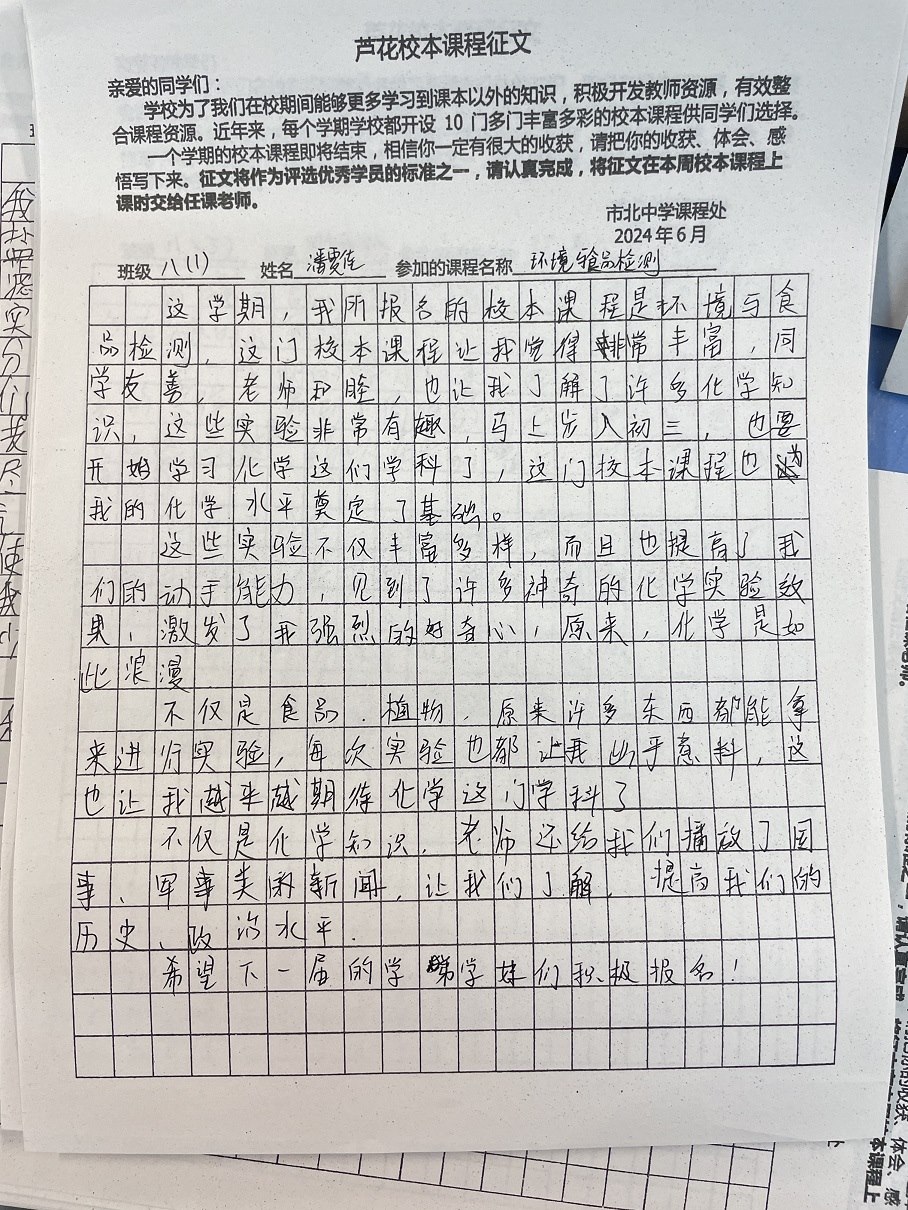 芦花校本课程征文
亲爱的同学们：
学校为了我们在校期间能够更多学习到课本以外的知识，积极开发教师资源，有效整
合课程资源。近年来，每个学期学校都开设 10 门多门丰富多彩的校本课程供同学们选择。
一个学期的校本课程即将结束，相信你一定有很大的收获，请把你的收获、体会、感
悟写下来。征文将作为评选优秀学员的标准之一，请认真完成，将征文在本周校本课程上
课时交给任课老师。
市北中学课程处
2024 年 6 月
班级 八(1) 姓名 潘 佳 参加的课程名称 环境与食品检测
这学期，我所报名的校本课程是环境与食
品检测，这门校本课程让我觉得非常丰富，同
学友善，老师和睦，也让我了解了许多化学知
识，这些实验非常有趣，马上步入初三，也要
开始学习化学这们学科了，这门校本课程也为
我的化学水平奠定了基础。
这些实验不仅丰富多样，而且也提高了我
们的动手能力，见到了许多神奇的化学实验效
果，激发了我强烈的好奇心，原来，化学是如
此浪漫
不仅是食品、植物，原来许多东西都能拿
来进行实验，每次实验也都让我出乎意料，这
也让我越来越期待化学这门学科了
不仅是化学知识，老师还给我们播放了国
事、军事类的新闻，让我们了解，提高我们的
历史、政治水平.
希望下一届的学弟学妹们积极报名！